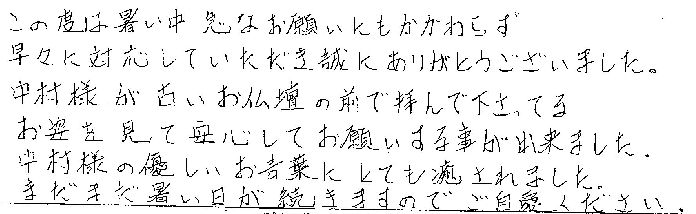 この度は暑い中 急なお願いにもかかわらず
早々に対応していただき誠にありがとうございました。
中村様が古いお仏壇の前で拝んで下さってる
お姿を見て安心してお願いする事が出来ました.
中村様の優しいお言葉にとても癒されました。
まだまだ暑い日が続きますのでご自愛ください.